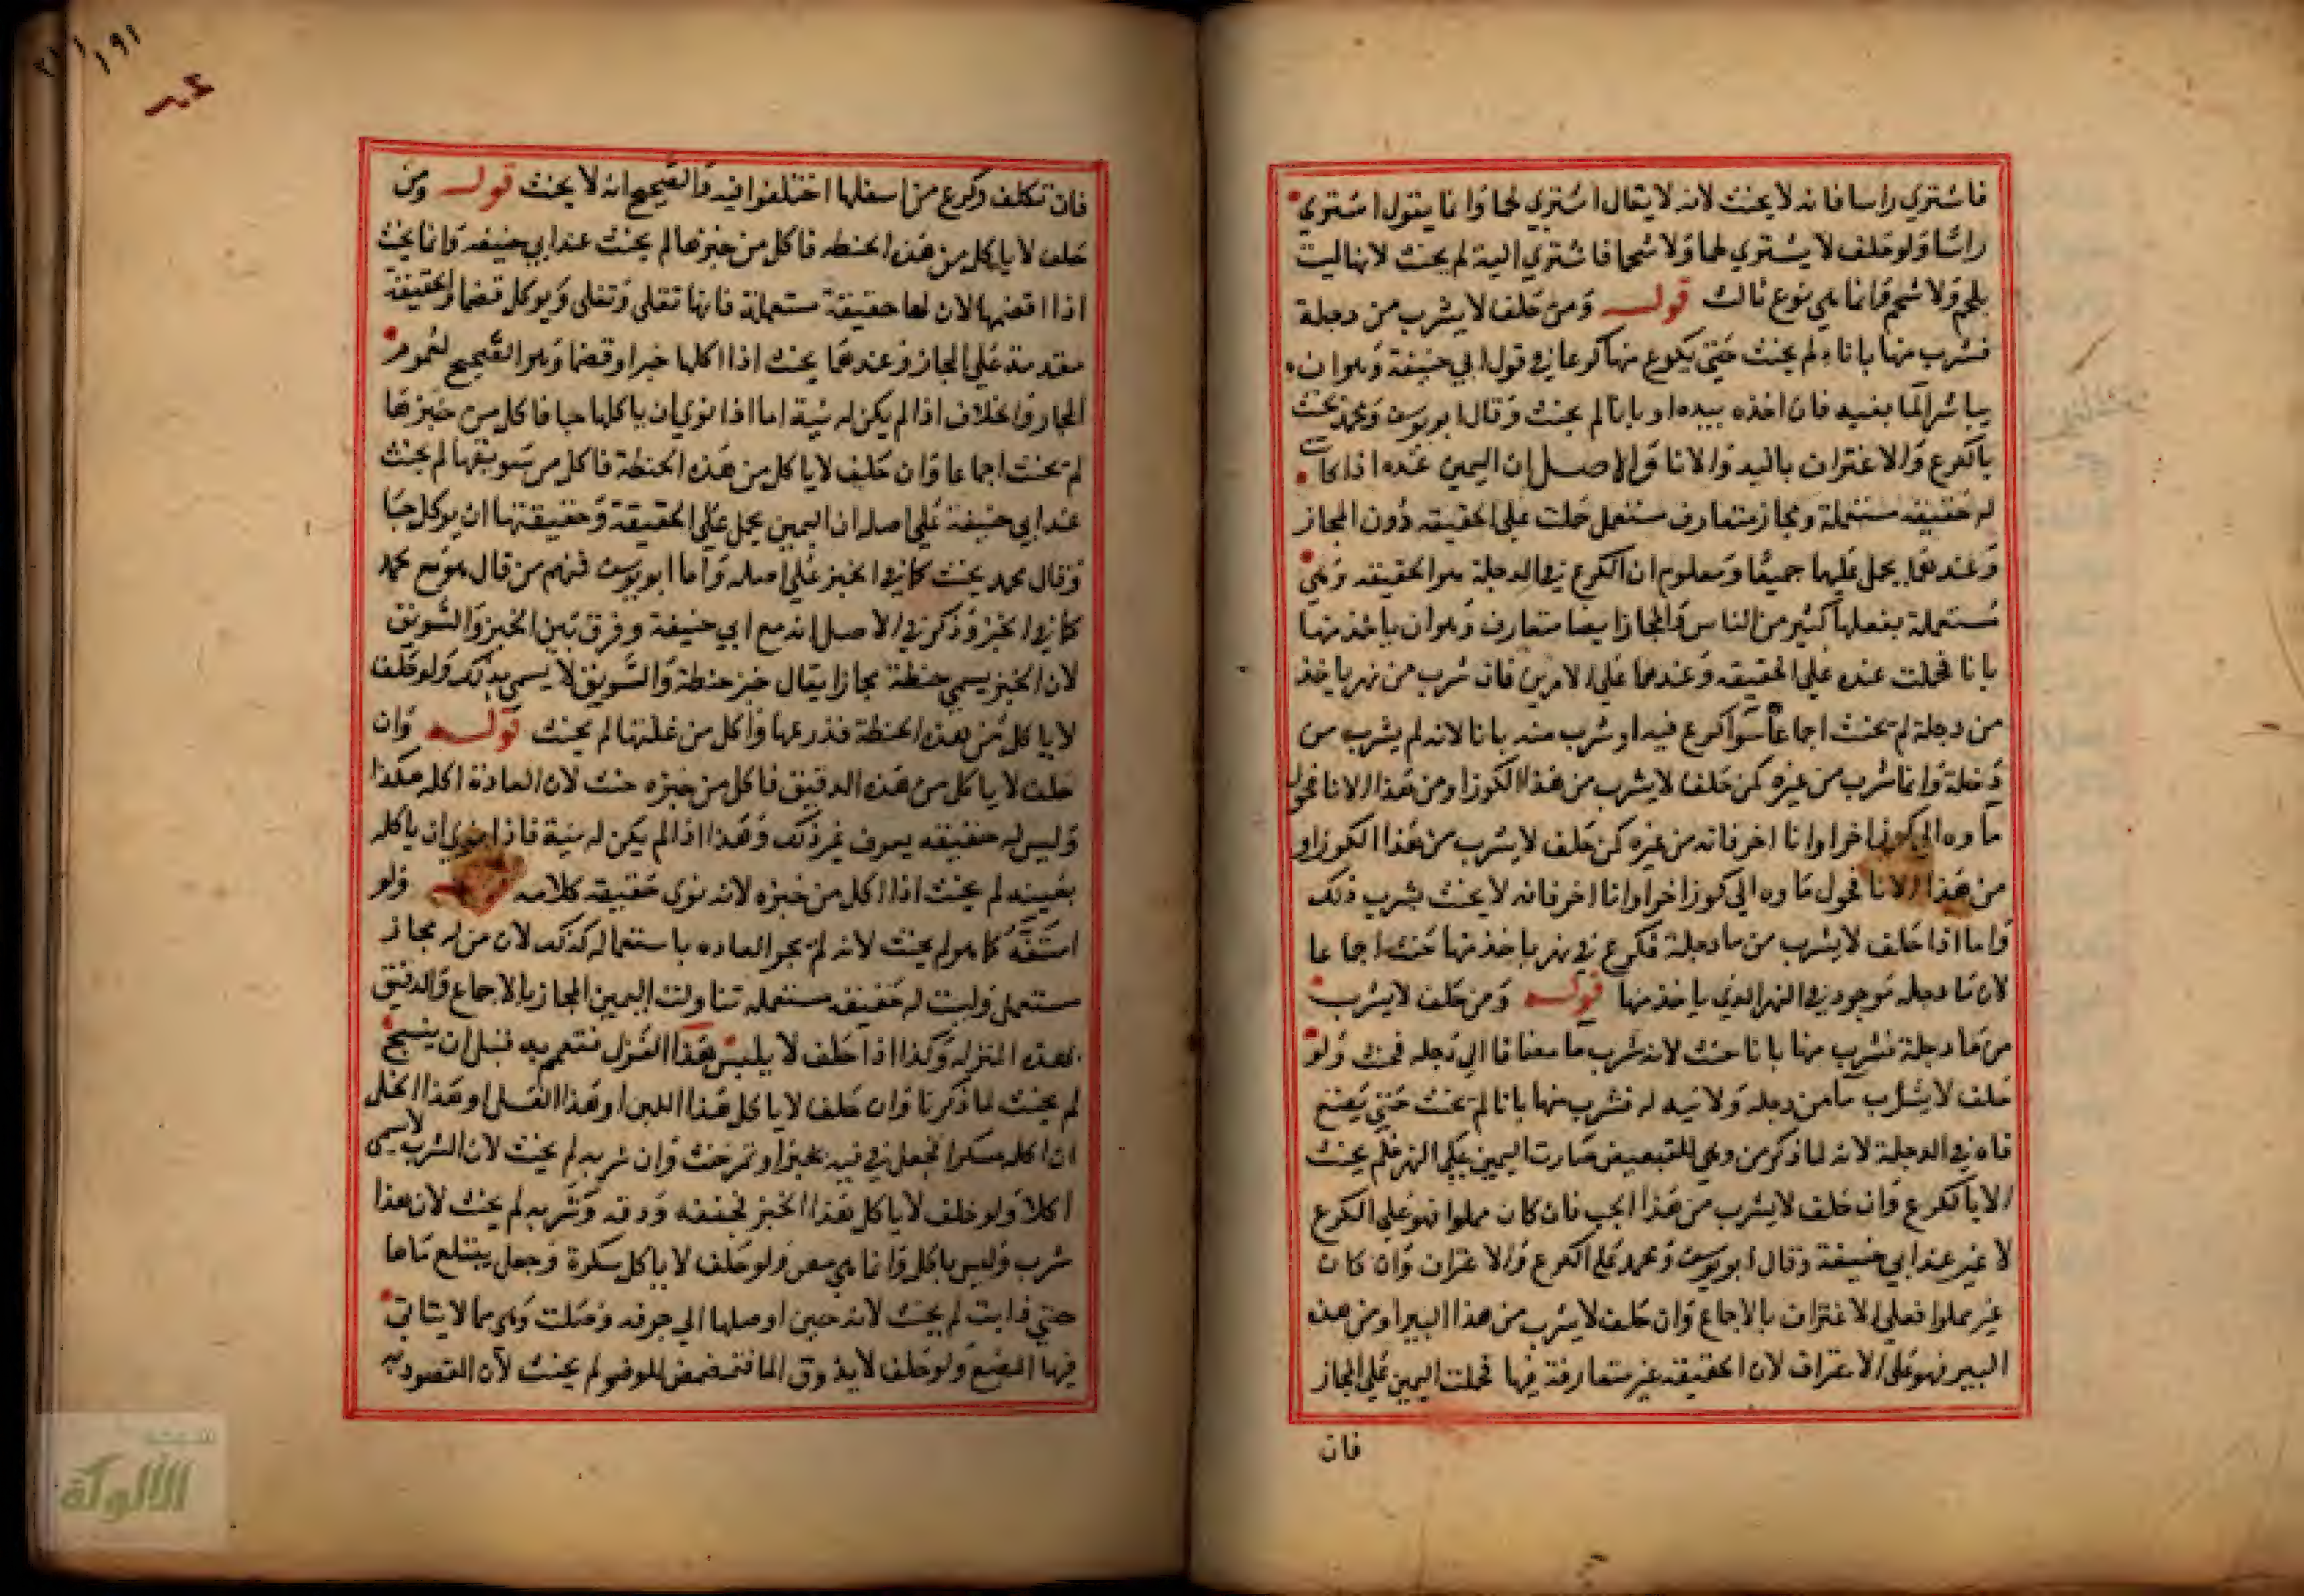 فاشتري راسا فانه لا يحنث لانه لا يقال اشتري لحما وانما يقول اشتري
راسا ولو حلف لا يشتري لحما ولا شحما فاشتري الية لم يحنث لانها ليست
بلحم ولا شحم وانما هي نوع ثالث قوله ومن حلف لا يشرب من دجلة
فشرب منها باناء لم يحنث حتي يكرع منها كرعا في قول ابي حنيفة وهو ان
يباشر الما بفيه فان اخذه بيده او بانا لم يحنث وقال ابو يوسف ومحمد يحنث
بالكرع والاغتراف باليد والانا والاصل ان اليمين عنده اذا كانت
له حقيقه مستعملة ومجاز متعارف مستعمل حملت علي الحقيقه دون المجاز
وعندهما يحمل عليها جميعا ومعلوم ان الكرع في الدجلة هو الحقيقه وهي
مستعملة يفعلها كثير من الناس والمجاز ايضا متعارف وهو ان ياخذ منها
بانا فحملت عنده علي الحقيقه وعندهما علي الامرين فان شرب من نهر ياخذ
من دجلة لم يحنث اجماعا سوا كرع فيه او شرب منه بانا لانه لم يشرب من
دجلة وانما شرب من غيره كمن حلف لا يشرب من هذا الكوز او من هذا الانا فحول
ماوه الي كوز اخر او انا اخر فانه من غيره كمن حلف لا يشرب من هذا الكوز او
من هذا الانا فحول ماوه الي كوز اخر او انا اخر فانه لا يحنث بشرب ذلك
واما اذا حلف لا يشرب من ما دجلة فكرع في نهر ياخذ منها حنث اجماعا
لان ما دجله موجود في النهر الذي ياخذ منها قوله ومن حلف لا يشرب
من ما دجلة فشرب منها بانا حنث لانه شرب ما مضافا الي دجله فحنث ولو
حلف لا يشرب ما من دجله ولا نيه له فشرب منها بانا لم يحنث حتي يضع
فاه في الدجلة لانه لما ذكر من وهي للتبعيض صارت اليمين علي النهر فلم يحنث
الا بالكرع وان حلف لا يشرب من هذا الجب فان كان مملوا فهو علي الكرع
لا غير عند ابي حنيفة وقال ابو يوسف ومحمد علي الكرع والاغتراف وان كان
غير مملوا فعلي الاغتراف بالاجماع وان حلف لا يشرب من هذا البير او من هذه
البير فهو علي الاغتراف لان الحقيقه غير متعارفة فيها فحملت اليمين علي المجاز
فان
١٩١
فان تكلف وكرع من اسفلها اختلفوا فيه فالصحيح انه لا يحنث قوله ومن
حلف لا ياكل من هذه الحنطه فاكل من خبزها لم يحنث عند ابي حنيفه وانما يحنث
اذا اقضمها لان لها حقيقة مستعملة فانها تقلي وتغلي ويوكل قضما والحقيقة
مقدمة علي المجاز وعندهما يحنث اذا اكلها خبزا وقضما وهو الصحيح لعموم
المجاز والخلاف اذا لم يكن له نية اما اذا نوي ان ياكلها حبا فاكل من خبزها
لم يحنث اجماعا وان حلف لا ياكل من هذه الحنطة فاكل من سويقها لم يحنث
عند ابي حنيفة علي اصله ان اليمين يحمل علي الحقيقة وحقيقتها ان يوكل حبا
وقال محمد يحنث كما في الخبز علي اصله واما ابو يوسف فمنهم من قال هو مع محمد
كما في الخبز وذكر في الاصل انه مع ابي حنيفة وفرق بين الخبز والسويق
لان الخبز يسمي حنطة مجازا يقال خبز حنطة والسويق لا يسمي بذلك ولو حلف
لا ياكل من هذه الحنطة فزرعها واكل من غلتها لم يحنث قوله وان
حلف لا ياكل من هذه الدقيق فاكل من خبزه حنث لان العادة اكله هكذا
وليس له حقيقه يعرف غير ذلك وهذا اذا لم يكن له نية فاذا نوي ان ياكله
بعينه لم يحنث اذا اكل من خبزه لانه نوي حقيقه كلامه ولو
استفه كما هو لم يحنث لانه لم تجر العاده باستعماله كذلك لان من له مجاز
مستعمل وليست له حقيقه مستعمله تناولت اليمين المجاز بالاجماع والدقيق
بهذه المنزله وكذا اذا حلف لا يلبس هذا الغزل فتعمم به قبل ان ينسج
لم يحنث لما ذكرنا وان حلف لا ياكل هذا اللبن او هذا العسل او هذا الخل
ان اكله فجعل فيه خبزا او تمر حنث وان شربه لم يحنث لان الشرب لا يسمي
اكلا ولو حلف لا ياكل هذا الخبز فجففه ودقه وشربه لم يحنث لان هذا
شرب وليس باكل وانما هي مص ولو حلف لا ياكل سكرة وجعل يبتلع ماها
حتي ذابت لم يحنث لانه حين اوصلها الي جوفه وصلت وهي مما لا يتاتي
فيها المضغ ولو حلف لا يذوق الما فتمضمض للوضو لم يحنث لان المقصود به
شبكة
الألوكة